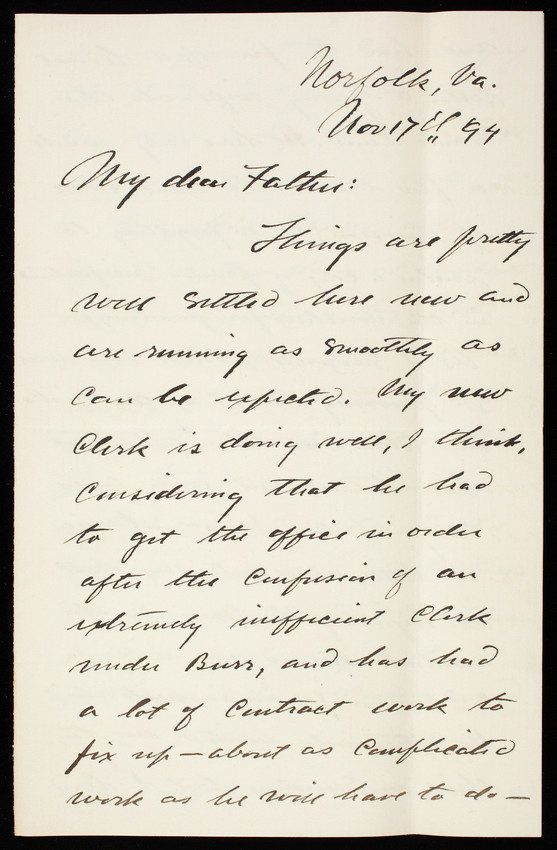 Norfolk, Va.
Nov 17th 94
My dear Father:
Things are pretty
well settled here now and
are running as smoothly as
can be expected. My new
Clerk is doing well, I think,
considering that he had
to get the office in order
after the confusion of an
extremely inefficient Clerk
under Burr, and has had
a lot of contract work to
fix up — about as complicated
work as he will have to do —